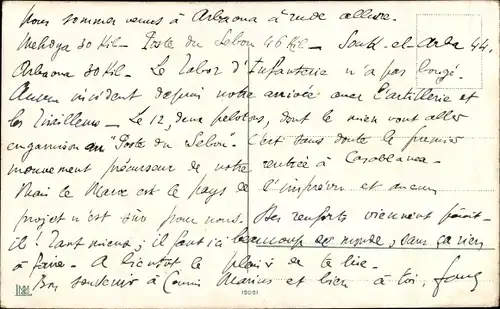 Nous sommes venus à Arbaoua à rude allure.
Mehdya 30 Kil – Poste du Sebou 46 Kil – Souk-el-Arba 44.
Arbaoua 30 Kil – Le Tabor d'Infanterie n'a pas bougé.
Aucun incident depuis notre arrivée avec l'artillerie et
les Tirailleurs – Le 12, deux pelotons, dont le mien vont aller
en garnison au "Poste du Sebou". C'est sans doute le premier
mouvement précurseur de notre rentrée à Casablanca –
Mais le Maroc est le pays de l'imprévu et aucun
projet n'est sûr pour nous. Des renforts viennent paraît-
il! Tant mieux; il faut ici beaucoup de monde, sans ça rien
à faire. A bientôt le plaisir de te lire –
Bon souvenir à Marius et bien à toi,
12021